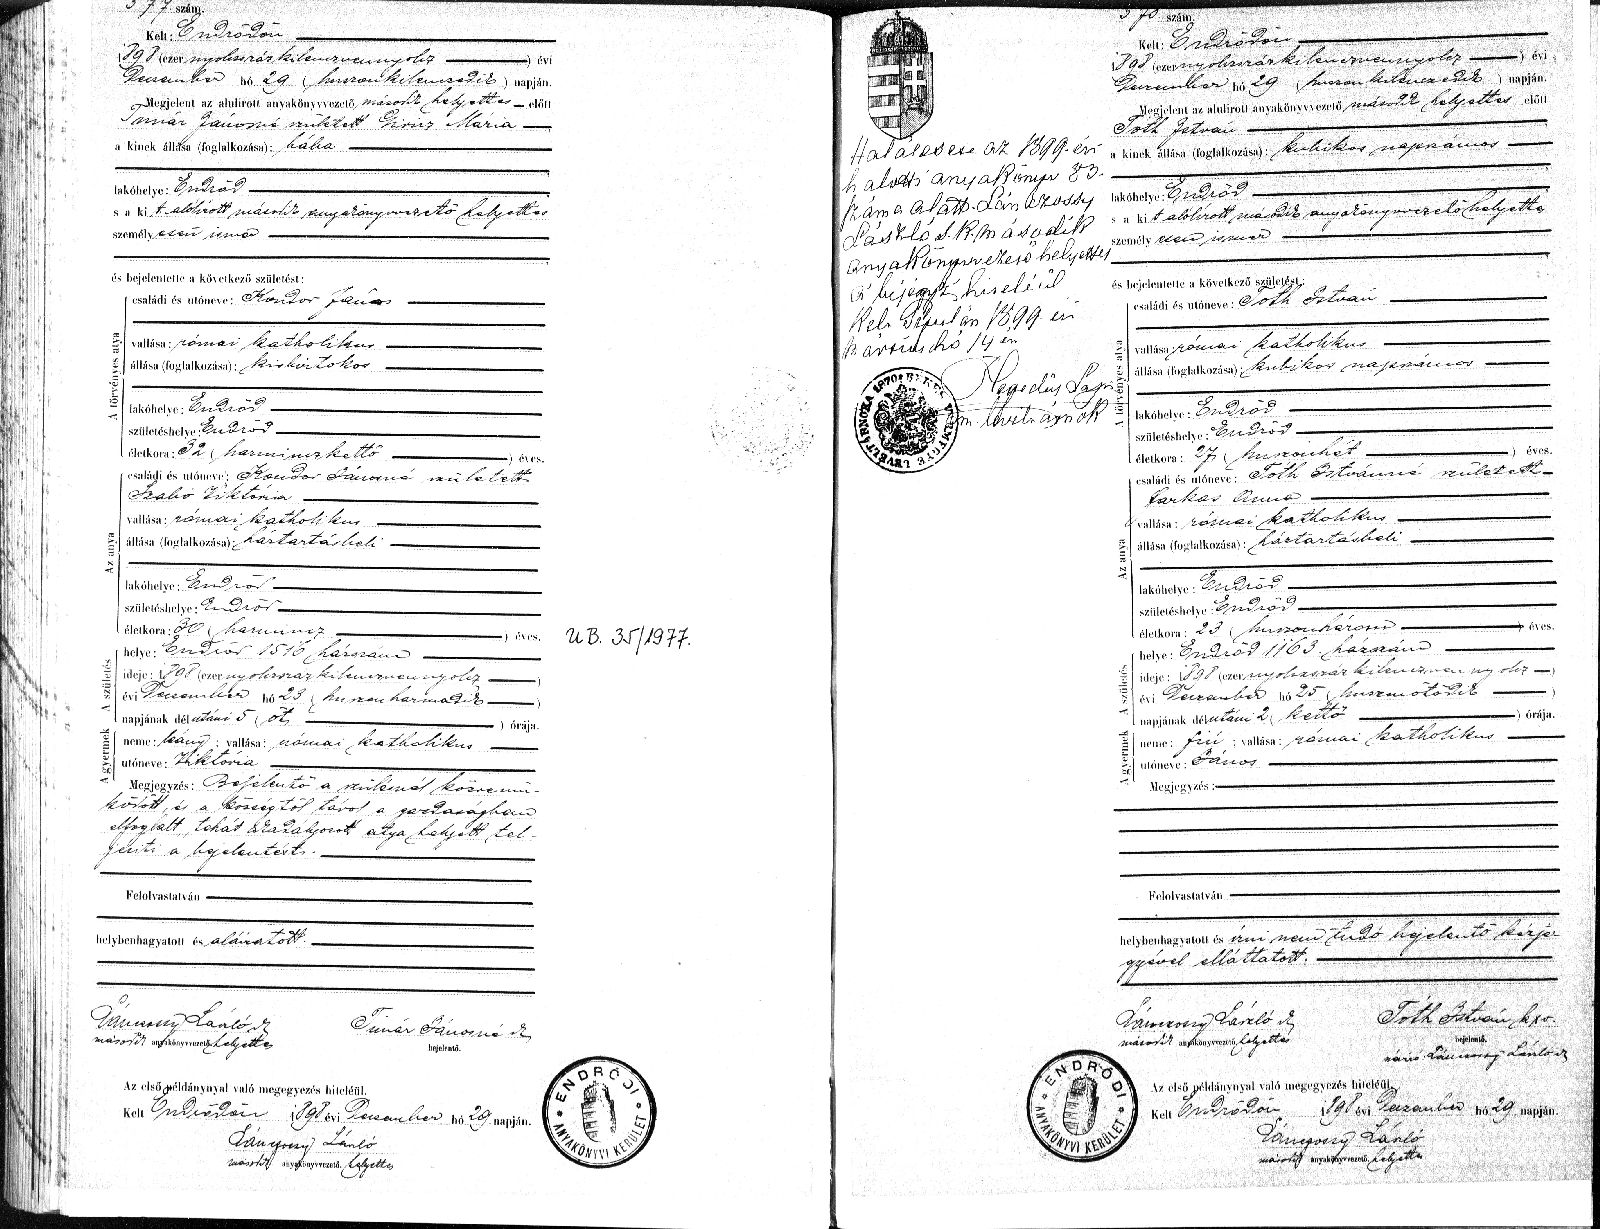 577 szám.
Kelt: Endrődön
1898 (ezer nyolcszázkilenczvennyolcz) évi
December hó 29 (huszonkilenczedik) napján.
Megjelent az alulirott anyakönyvvezető második helyettes előtt
Timár Jánosné született Mária
a kinek állása (foglalkozása): bába
lakóhelye: Endrőd
s a kit alólirott második anyakönyvvezető helyettes
személyesen ismer
és bejelentette a következő születést:
A törvényes atya
családi és utóneve: Kondor János
vallása: római katholikus
állása (foglalkozása): kisbirtokos
lakóhelye: Endrőd
születéshelye: Endrőd
életkora: 32 (harminczkettő) éves.
Az anya
családi és utóneve: Kondor Jánosné született
Szabó Viktória
vallása: római katholikus
állása (foglalkozása): háztartásbeli
lakóhelye: Endrőd
születéshelye: Endrőd
életkora: 30 (harmincz) éves.
A születés
helye: Endrőd 1516 házszám
ideje: 1898 (ezer nyolczszázkilenczvennyolcz)
évi December hó 23 (huszonharmadik)
napjának délutáni 5 (öt) órája.
A gyermek
neme: leány; vallása: római katholikus
utóneve: Viktória
Megjegyzés: Bejelentő a szülésnél közremü-
ködött és a községtől távol a gazdaságban
elfoglalt, tehát akadályozott atya helyett tel-
jesiti a bejelentést.
Felolvastatván
helybenhagyatott és aláiratott.
Lánczossy László sk
második anyakönyvvezető helyettes
Timár Jánosné sk
bejelentő.
Az első példánynyal való megegyezés hiteléül.
Kelt Endrődön 1898 évi December hó 29 napján.
Lánczossy László
második anyakönyvvezető. helyettes
ENDRŐDI
ANYAKÖNYVI KERÜLET
UB. 35/1977.
Halálesete az 1899. évi
halotti anyakönyv 83.
száma alatt. Lánczossy
László s.k. második
anyakönyvvezető helyettes
A bejegyzés hiteléül
Kelt Gyulán 1899. évi
március hó 14 én
Hegedüs
levéltárnok
578 szám.
Kelt: Endrődön
1898 (ezer nyolczszázkilenczvennyolcz) évi
December hó 29 (huszonkilenczedik) napján.
Megjelent az alulirott anyakönyvvezető második helyettes előtt
Tóth István
a kinek állása (foglalkozása): kubikos napszámos
lakóhelye: Endrőd
s a kit alólirott második anyakönyvvezető helyettes
személyesen ismer
és bejelentette a következő születést:
A törvényes atya
családi és utóneve: Tóth István
vallása: római katholikus
állása (foglalkozása): kubikos napszámos
lakóhelye: Endrőd
születéshelye: Endrőd
életkora: 27 (huszonhét) éves.
Az anya
családi és utóneve: Tóth Istvánné született
Farkas Anna
vallása: római katholikus
állása (foglalkozása): háztartásbeli
lakóhelye: Endrőd
születéshelye: Endrőd
életkora: 23 (huszonhárom) éves.
A születés
helye: Endrőd 1163. házszám
ideje: 1898 (ezer nyolczszázkilenczvennyolcz)
évi December hó 25 (huszonötödik)
napjának délutáni 2 (kettő) órája.
A gyermek
neme: fiú; vallása: római katholikus
utóneve: János
Megjegyzés:
Felolvastatván
helybenhagyatott és irni nem tudó bejelentő kézje-
gyével elláttatott.
Lánczossy László sk
második anyakönyvvezető. helyettes
Tóth István
bejelentő.
Lánczossy László sk
Az első példánynyal való megegyezés hiteléül.
Kelt Endrődön 1898 évi December hó 29 napján.
Lánczossy László
második anyakönyvvezető. helyettes
ENDRŐDI
ANYAKÖNYVI KERÜLET